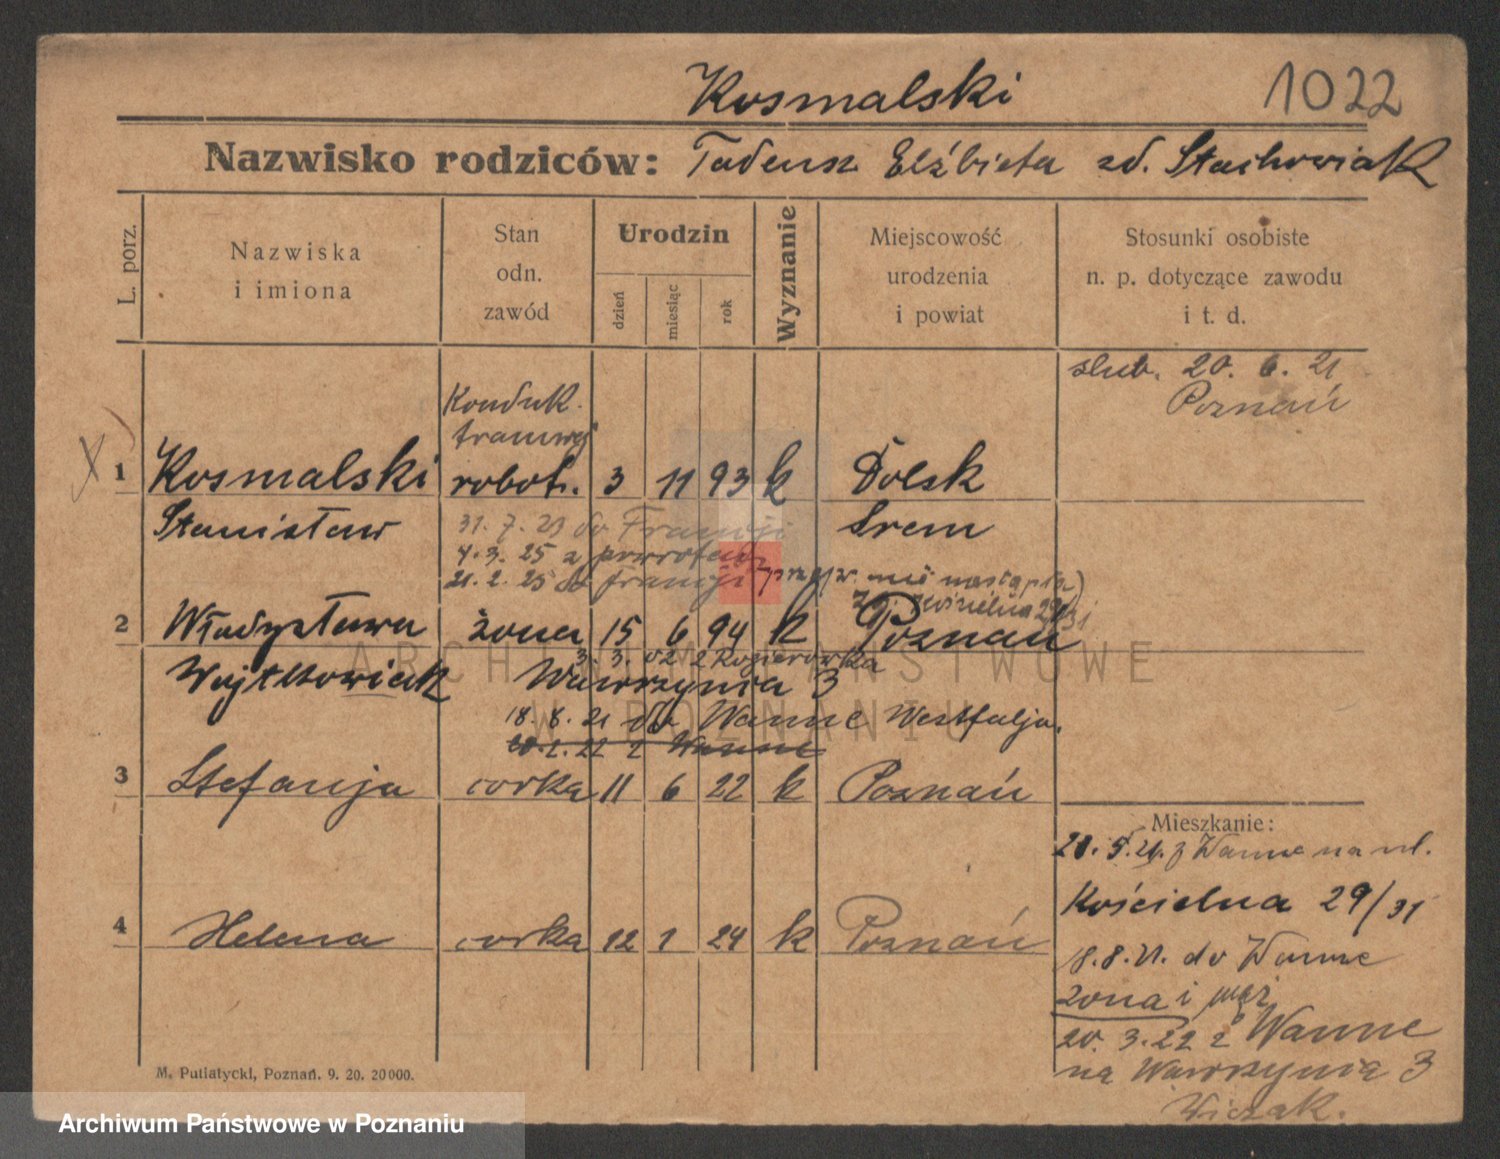 Kosmalski
1022
Nazwisko rodziców: Tadeusz Elżbieta zd. Stachowiak
L. porz.
Nazwiska
i imiona
Stan
odn.
zawód
Urodzin
dzień
miesiąc
rok
Wyznanie
Miejscowość
urodzenia
i powiat
Stosunki osobiste
n. p. dotyczące zawodu
i t. d.
slub. 20. 6. 21
Poznań
Konduk.
tramwaj
1 Kosmalski robot. 3 11 93 k Dolsk
Stanisław 31. 7. 23 do Francji Srem
4. 3. 25 z powrotem
21. 2. 25 do francji nie nastąpiła)
Kościelna 29/31
2 Władysława żona 15 6 94 k Poznań
3. 3. 22 z
Wojtkowiak Wawrzynia 3
18. 8. 21 do Wanne Westfalja.
20. 2. 22 z Wanne
3 Stefanja corka 11 6 22 k Poznań
Mieszkanie:
20. 5. 21. z Wanne na ul.
Kościelna 29/31
4 Helena corka 12 1 24 k Poznań
18. 8. 21. do Wanne
żona i mąż
20. 3. 22 z Wanne
na Wawrzynia 3
Wiczak.
M. Putiatycki, Poznań. 9. 20. 20000.
ARCHIWUM PAŃSTWOWE
W POZNANIU
Archiwum Państwowe w Poznaniu